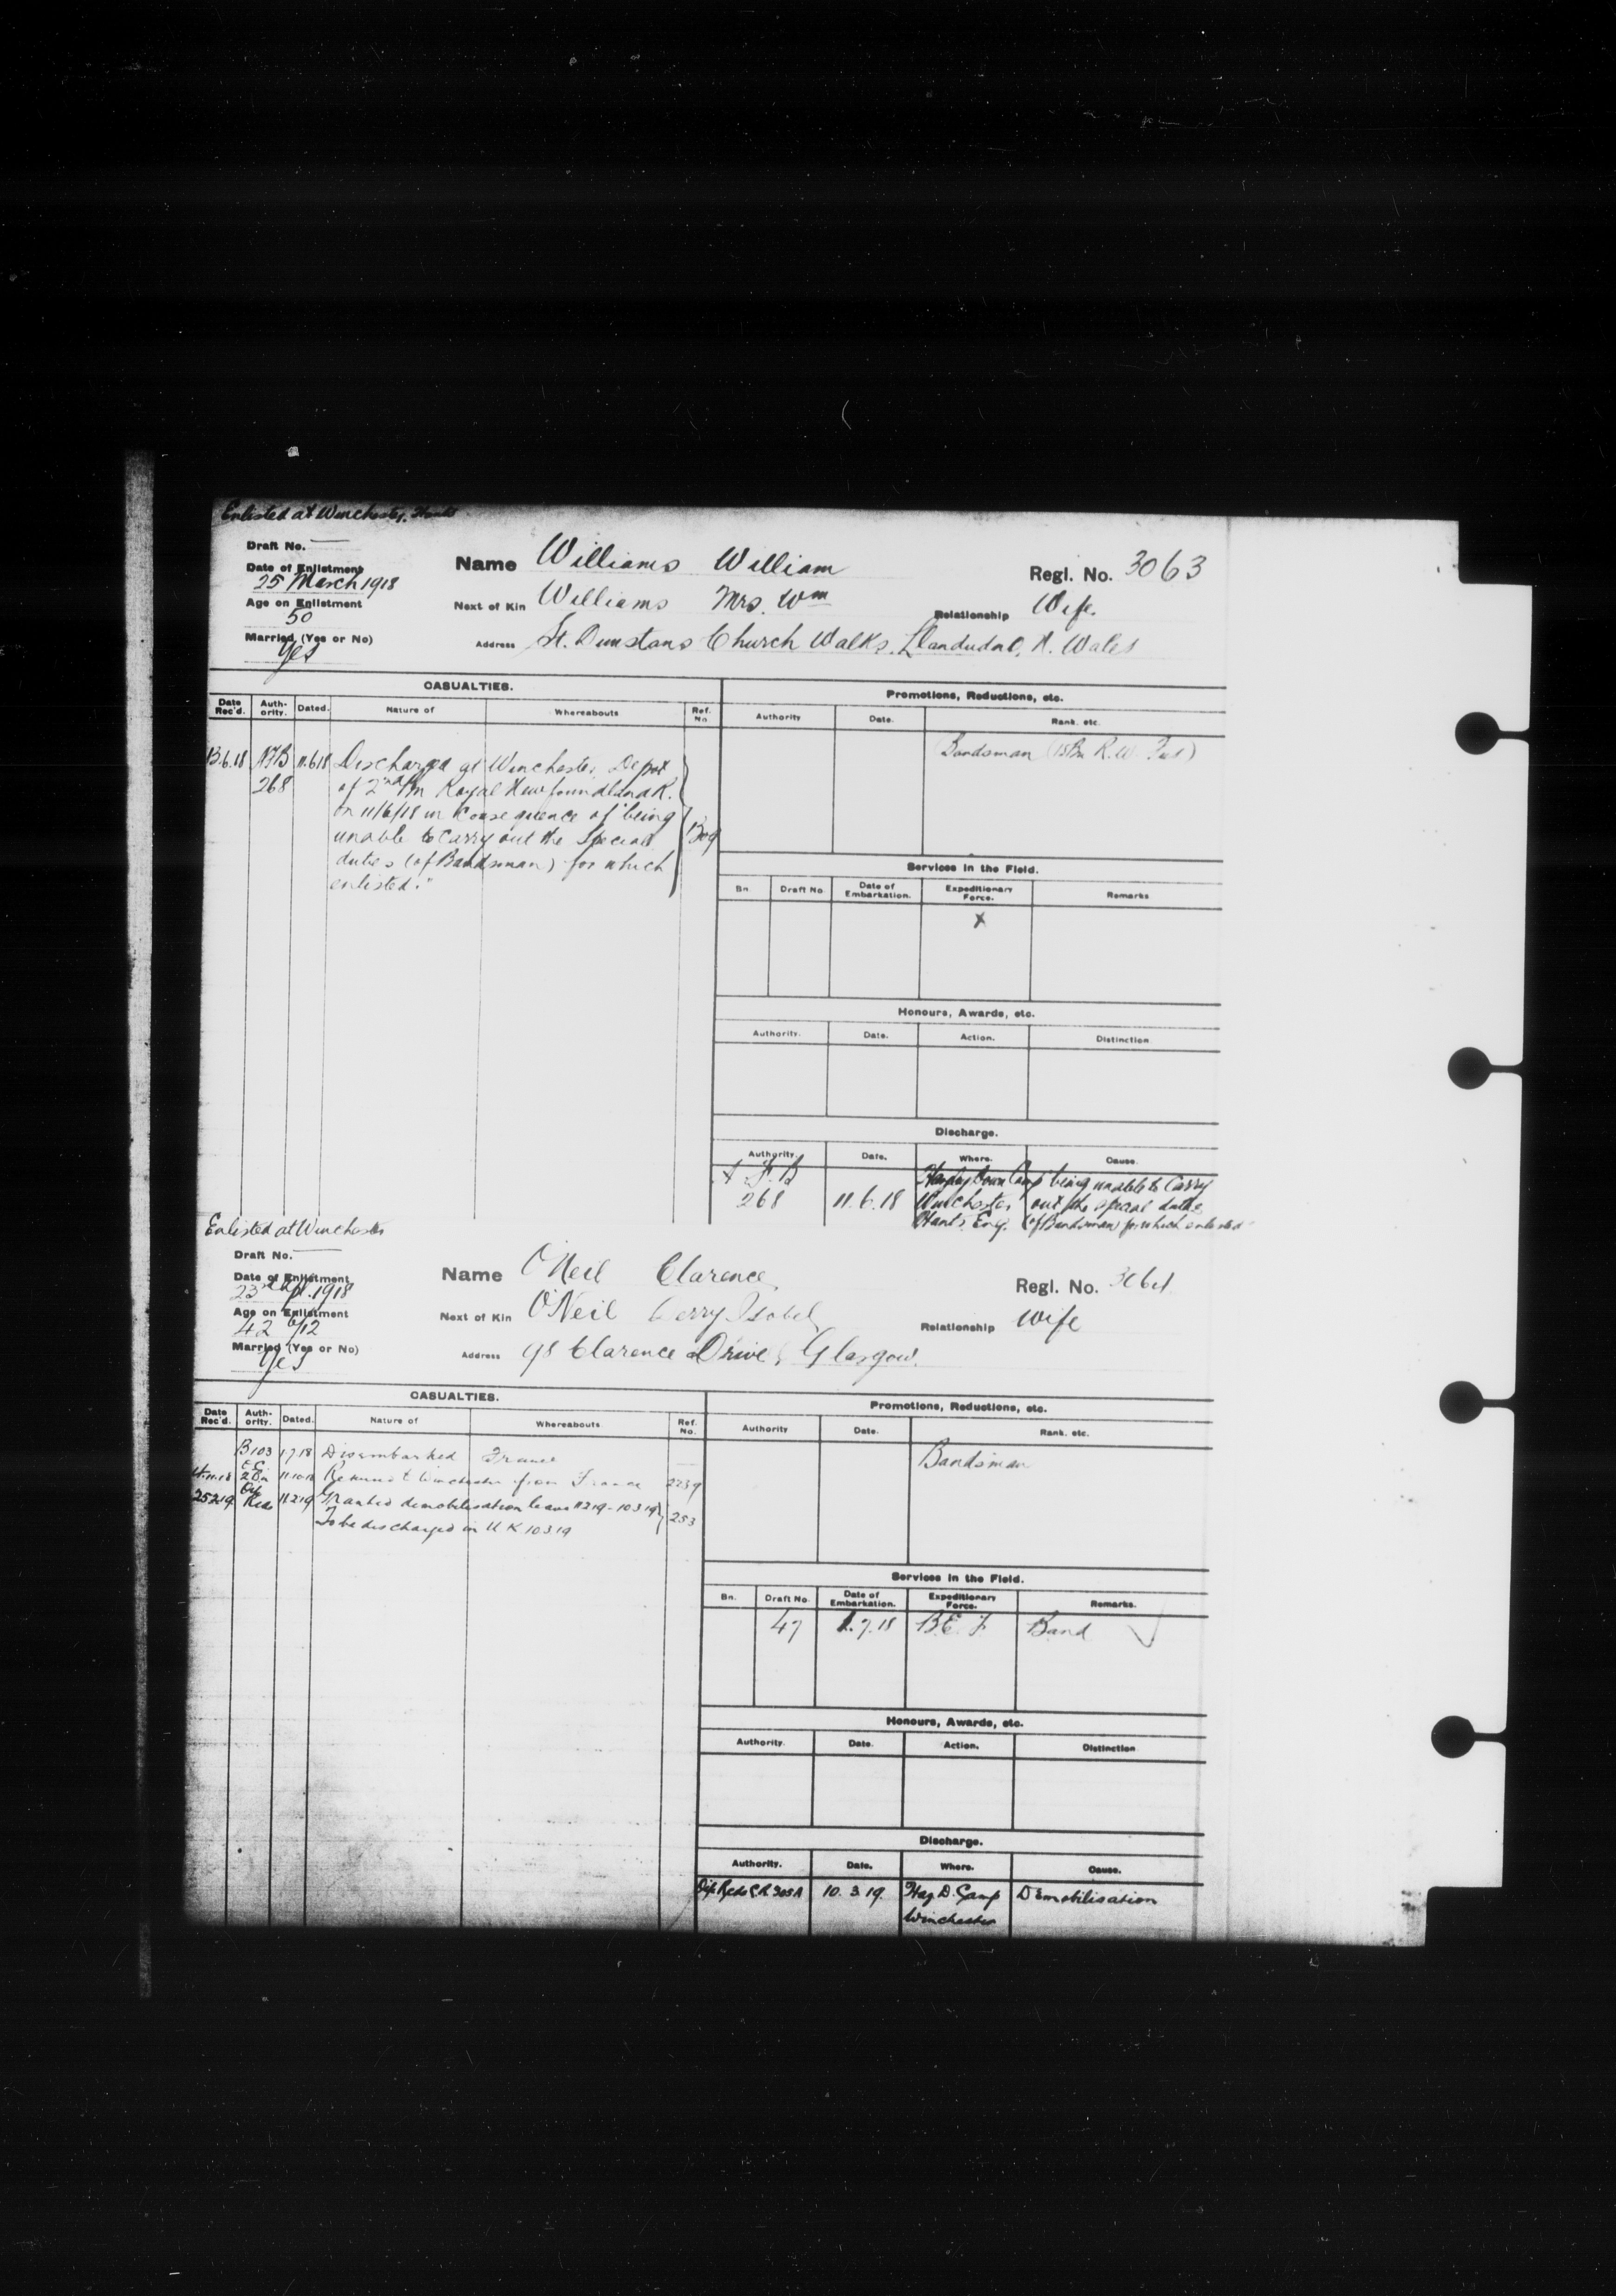 Enlisted at Winchester, Hants
Draft No. —
Date of Enlistment
25 March 1918
Age on Enlistment
50
Married (Yes or No)
Yes
Name Williams William
Regl. No. 3063
Next of Kin Williams Mrs. Wm
Relationship Wife.
Address St. Dunstans Church Walks, Llandudno, N. Wales
CASUALTIES.
Date Rec'd. Auth-ority. Dated. Nature of Whereabouts Ref. No.
13.6.18 NFB 11.6.18 Discharged at Winchester, Depot
268 of 2nd Bn Royal Newfoundland R.
on 11/6/18 in consequence of "being
unable to carry out the Special
duties (of Bandsman) for which
enlisted."
Promotions, Reductions, etc.
Authority Date. Rank. etc.
Bandsman
Services in the Field.
Bn. Draft No. Date of Embarkation. Expeditionary Force. Remarks
X
Honours, Awards, etc.
Authority. Date. Action. Distinction
Discharge.
Authority. Date. Where. Cause.
Down Camp being unable to Carry
268 11.6.18 Winchester out the special duties
Hants. Eng. (of Bandsman) for which enlisted
Enlisted at Winchester
Draft No. —
Date of Enlistment
23rd Apl. 1918
Age on Enlistment
42 6/12
Married (Yes or No)
Yes
Name O'Neil Clarence
Regl. No. 3064
Next of Kin O'Neil Isobel
Relationship Wife
Address 98 Clarence Drive, Glasgow.
CASUALTIES.
Date Rec'd. Auth-ority. Dated. Nature of Whereabouts Ref. No.
B103 1.7.18 Disembarked France
2Bn Returned to Winchester from France
25.2.19 11.2.19 Granted demobilisation leave 11.2.19 - 10.3.19
To be discharged in U K 10.3.19 253
Promotions, Reductions, etc.
Authority Date. Rank. etc.
Bandsman
Services in the Field.
Bn. Draft No. Date of Embarkation. Expeditionary Force. Remarks.
47 1.7.18 B.E.F Band
Honours, Awards, etc.
Authority. Date. Action. Distinction
Discharge.
Authority. Date. Where. Cause.
10.3.19 Haz. D. Camp Demobilisation
Winchester